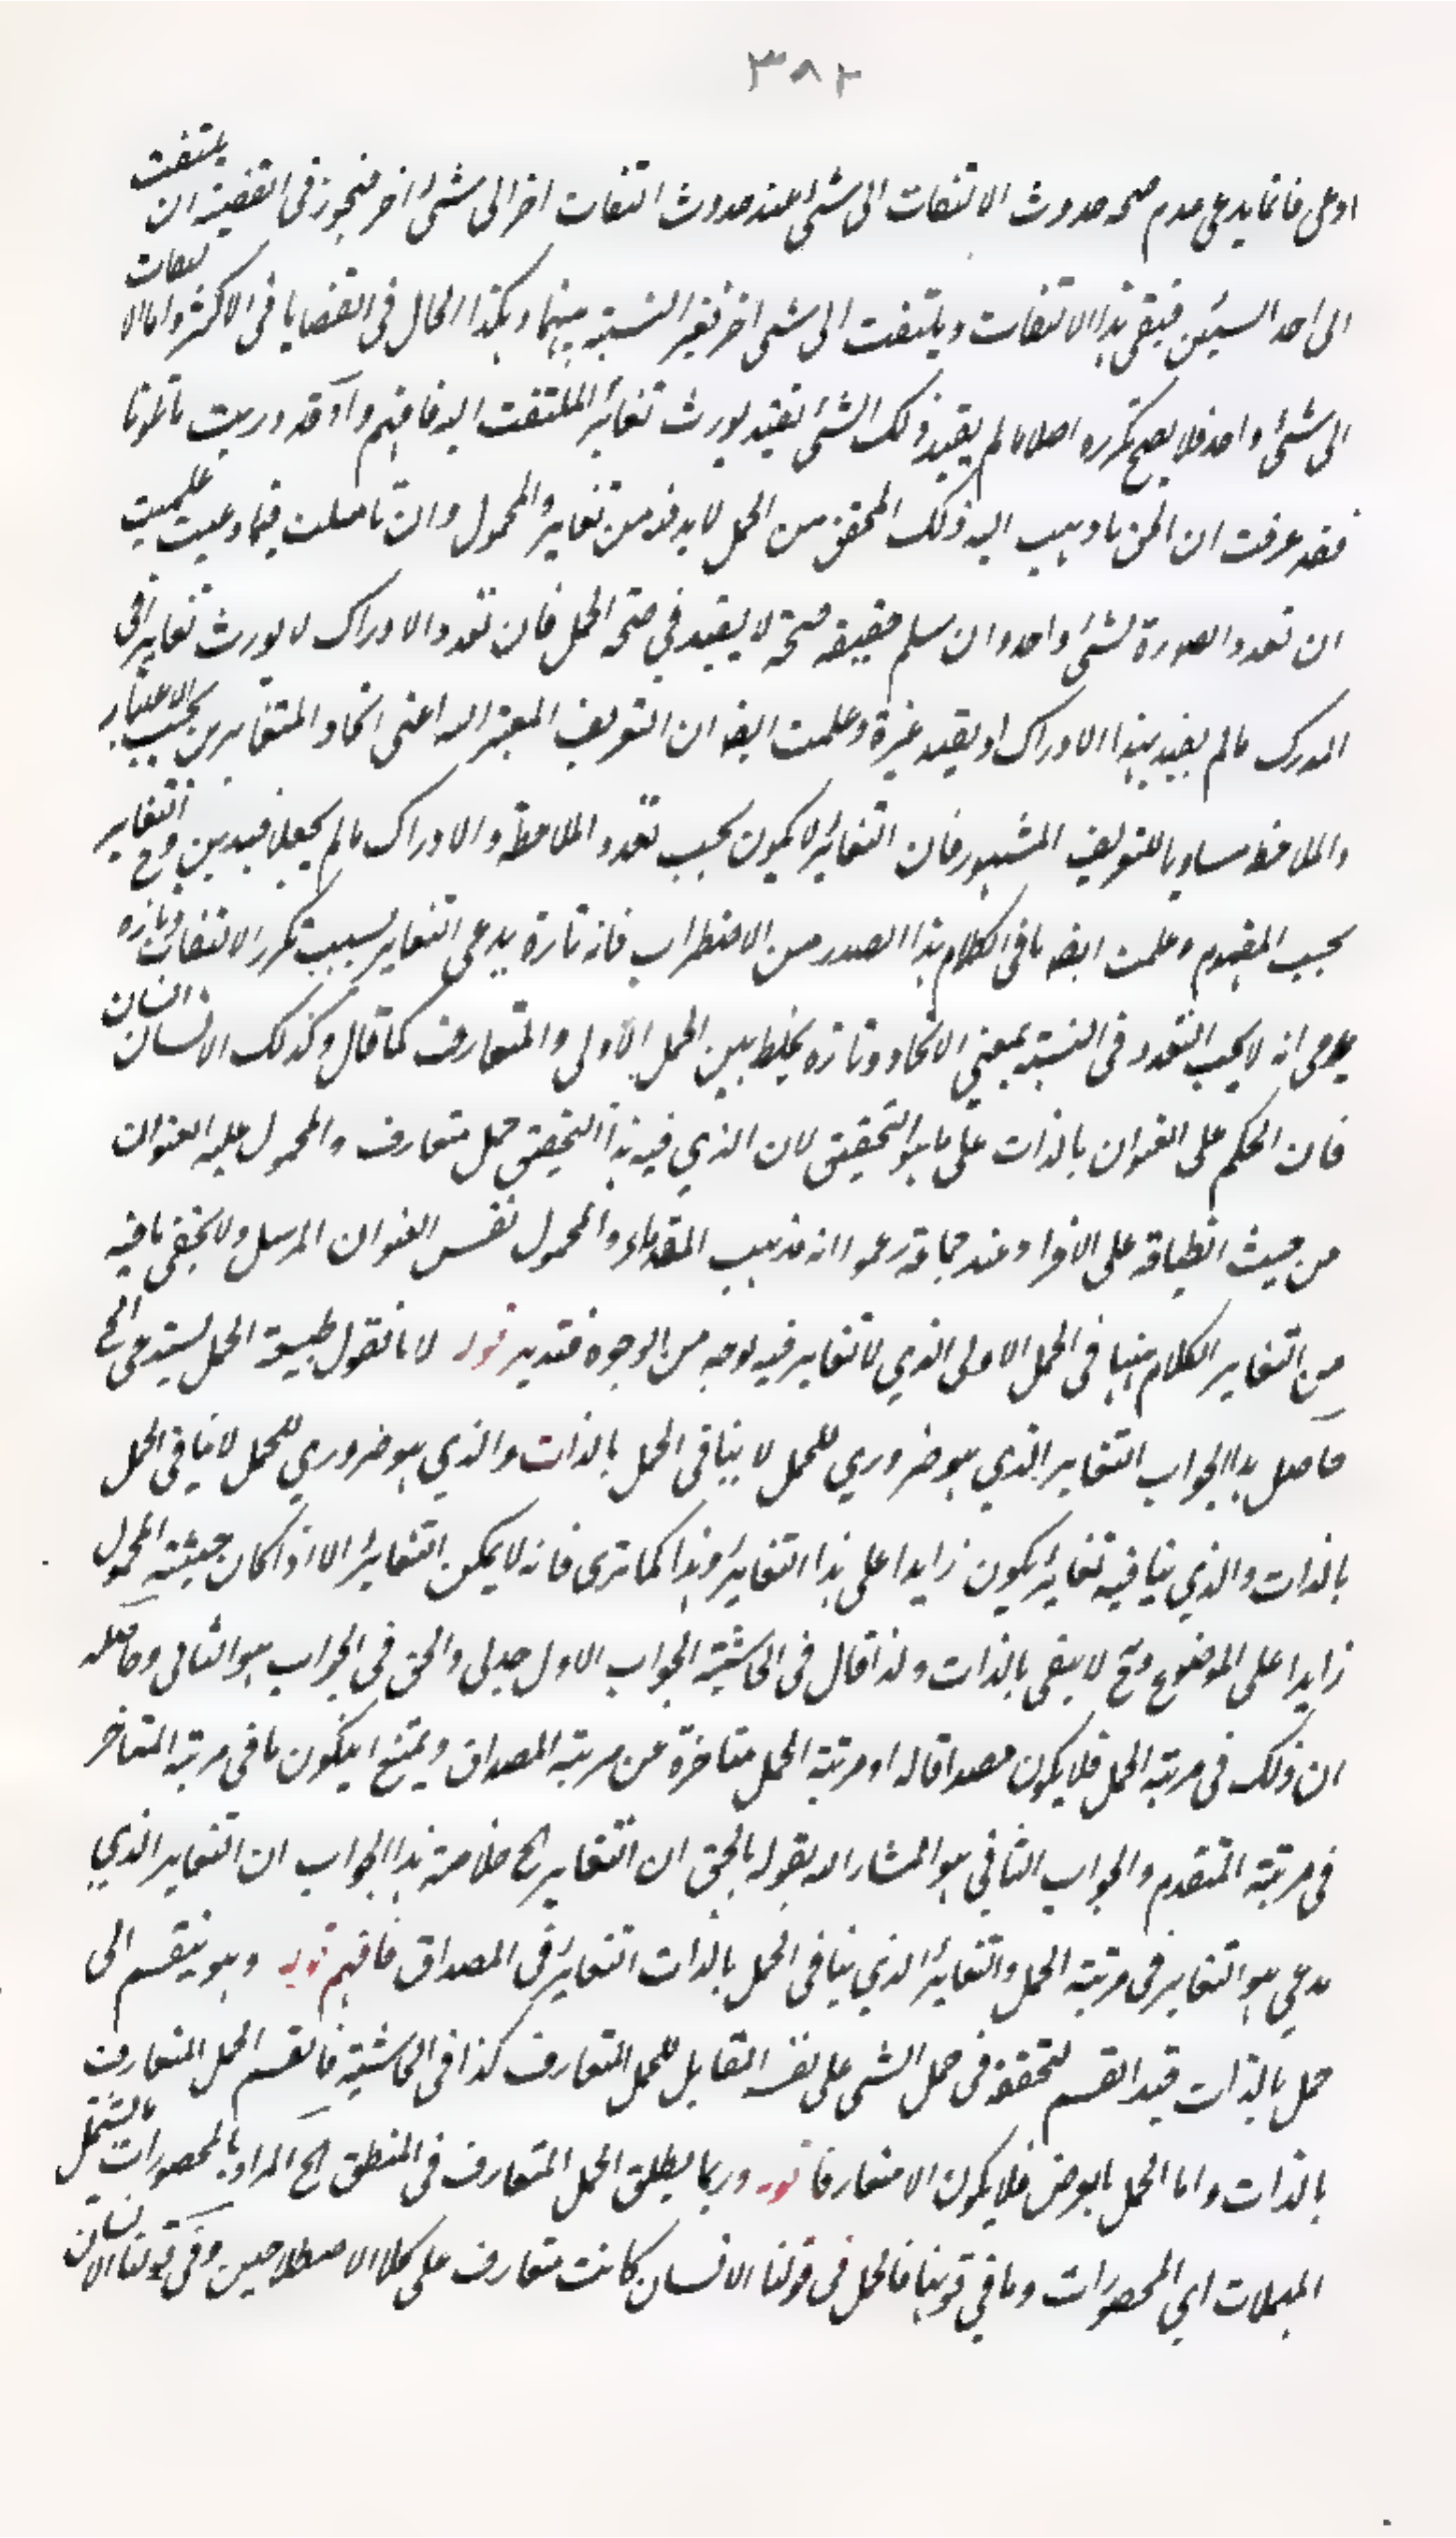 ٣٨٢
ادعى فانما يدعى عدم صحة حدوث الالتفات الى شئ عند حدوث التفات اخر الى شئ اخر فيجوز فى القضية ان يلتفت
الى احد الشيئين فيبقى هذا الالتفات ويلتفت الى شئ اخر فيعتبر النسبة بينهما وهكذا الحال فى القضايا فى الاكثر واما الالتفات
الى شئ واحد فلا يصح تكرره اصلا مالم يقيد ذلك الشئ بقيد يورث تغاير الملتفت اليه فافهم واذ قد دريت ما تلونا
فقد عرفت ان الحق ما ذهب اليه ذلك المحقق من الحمل لا بد فيه من تغاير والمحمول وان تاملت فيما وعيت علمت
ان تعدد الصورة لشئ واحد وان سلم حقيقة صحة لا يفيد في صحة الحمل فان تعدد الادراك لا يورث تغايرا فى
المدرك مالم يقيد بهذا الادراك او يقيد غيره وعلمت ايضه ان التعريف المعتبر اليه اعنى اتحاد المتغايرين بحسب الاعتبار
والملاحظة مساو بالتعريف المشهور فان التغاير لا يكون بحسب تعدد الملاحظة والادراك مالم يجعلا قيدين وح التغاير
بحسب المفهوم وعلمت ايضه ما فى الكلام هذا الصدر من الاضطراب فانه تارة يدعى التغاير بسبب تكرر الالتفات وتارة
يدعى انه لا يجب التعدد فى النسبة بمعنى الاتحاد وتارة يخلط بين الحمل الأولى والمتعارف كما قال وكذلك الانسان انسان
فان الحكم على العنوان بالذات على ما هو التحقيق لان الذي فيه هذا التحقيق حمل متعارف والمحمول عليه العنوان
من حيث انطباقه على الافراد وعند جماعة زعموا انه مذهب القدماء والمحمول نفس العنوان المرسل ولا يخفى ما فيه
من التغاير الكلام ههنا فى الحمل الاولى الذي لا تغاير فيه بوجه من الوجوه فتدبر قوله لانا نقول طبيعة الحمل يستدعى الخ
حاصل هذا الجواب التغاير الذي هو ضروري للحمل لا ينافى الحمل بالذات والذي هو ضروري للحمل لا ينافى الحمل
بالذات والذي ينافيه تغاير يكون زايدا على هذا التغاير وهذا كما ترى فانه لا يمكن التغاير الا اذا كان حيثية المحمول
زايدا على الموضوع وح لا يبقى بالذات ولذا قال فى الحاشية الجواب الاول جدلى والحق فى الجواب هو الثانى وحاصله
ان ذلك فى مرتبة الحمل فلا يكون مصداقا له او مرتبة الحمل متاخرة عن مرتبة المصداق ويمتنع ان يكون ما فى مرتبة المتاخر
فى مرتبة المتقدم والجواب الثانى هو المشار اليه بقوله بالحق ان التغاير الخ خلاصة هذا الجواب ان التغاير الذي
يدعى هو التغاير فى مرتبة الحمل والتغاير الذي ينافى الحمل بالذات التغاير فى المصداق فافهم قوله وهو ينقسم الى
حمل بالذات قيد القسم لتحققه فى حمل الشى على نفسه المقابل للحمل المتعارف كذا فى الحاشية فالقسم الحمل المتعارف
بالذات واما الحمل بالعرض فلا يكون الا متعارفا قوله وربما يطلق الحمل المتعارف فى المنطق الخ المراد بالمحصورات ما يشتمل
المهملات اي المحصورات وما في قوتها فالحمل فى قولنا الانسان كانت متعارف على كلا الاصطلاحين وفى قولنا الانسان